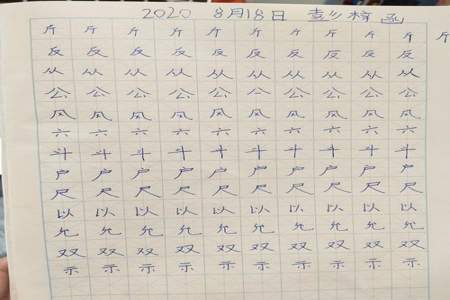 2020 8月18日
斤 斤 斤 斤 斤 斤 斤 斤 斤 斤
反 反 反 反 反 反 反 反 反
从 从 从 从 从 从 从 从 从
公 公 公 公 公 公 公 公 公
风 风 风 风 风 风 风 风 风
六 六 六 六 六 六 六 六 六
斗 斗 斗 斗 斗 斗 斗 斗 斗
户 户 户 户 户 户 户 户 户
尺 尺 尺 尺 尺 尺 尺 尺 尺
以 以 以 以 以 以 以 以 以
允 允 允 允 允 允 允 允 允
双 双 双 双 双 双 双 双 双
示 示 示 示 示 示 示 示 示